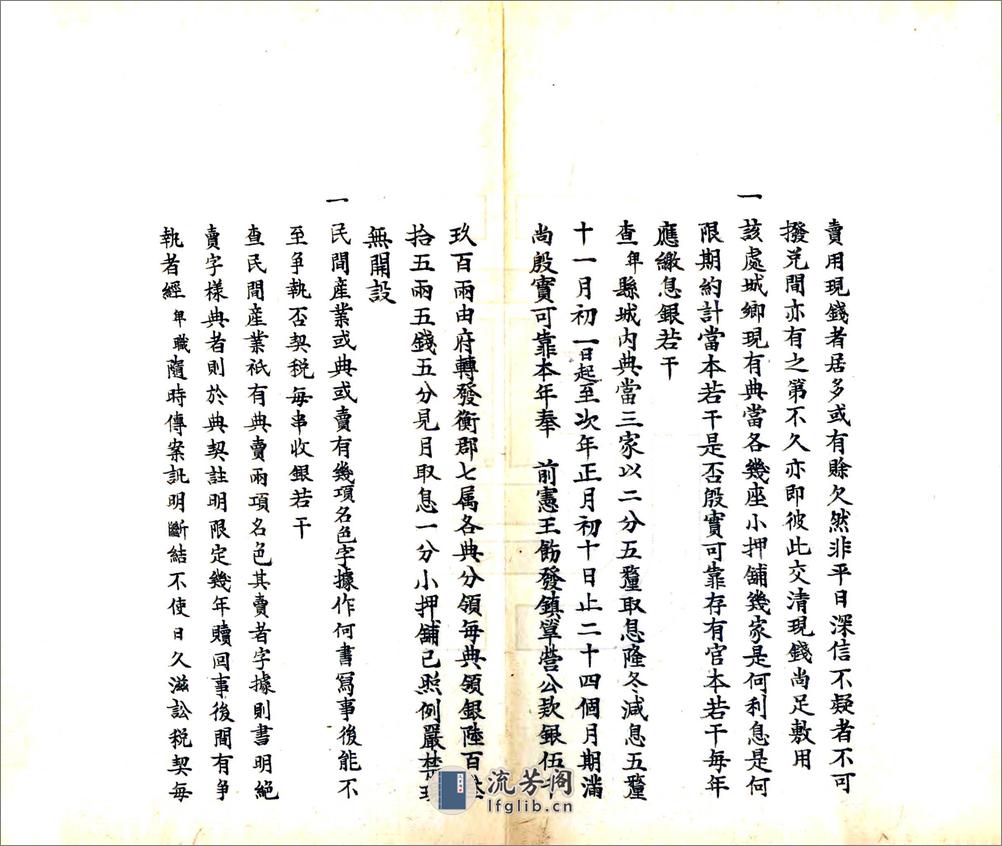 賣用現錢者居多或有賒欠然非平日深信不疑者不可
撥兑間亦有之第不久亦即彼此交清現錢尚足敷用
一該處城鄉現有典當各幾座小押舖幾家是何利息是何
限期約計當本若干是否殷實可靠存有官本若干每年
應繳息銀若干
查卑縣城内典當三家以二分五釐取息隆冬減息五釐
十一月初一日起至次年正月初十日止二十四個月期滿
尚殷實可靠本年奉 前憲王飭發鎮筸營公款銀伍
玖百兩由府轉發衡郡七属各典分領每典領銀陸百
拾五兩五錢五分見月取息一分小押舖已照例嚴禁現
無開設
一民間産業或典或賣有幾項名色字據作何書寫事後能不
至爭執否契税每串收銀若干
查民間産業祇有典賣兩項名色其賣者字據則書明絕
賣字樣典者則於典契註明限定幾年贖回事後間有爭
執者經卑職隨時傳案訊明斷結不使日久滋訟税契每
流芳阁
lfglib.cn